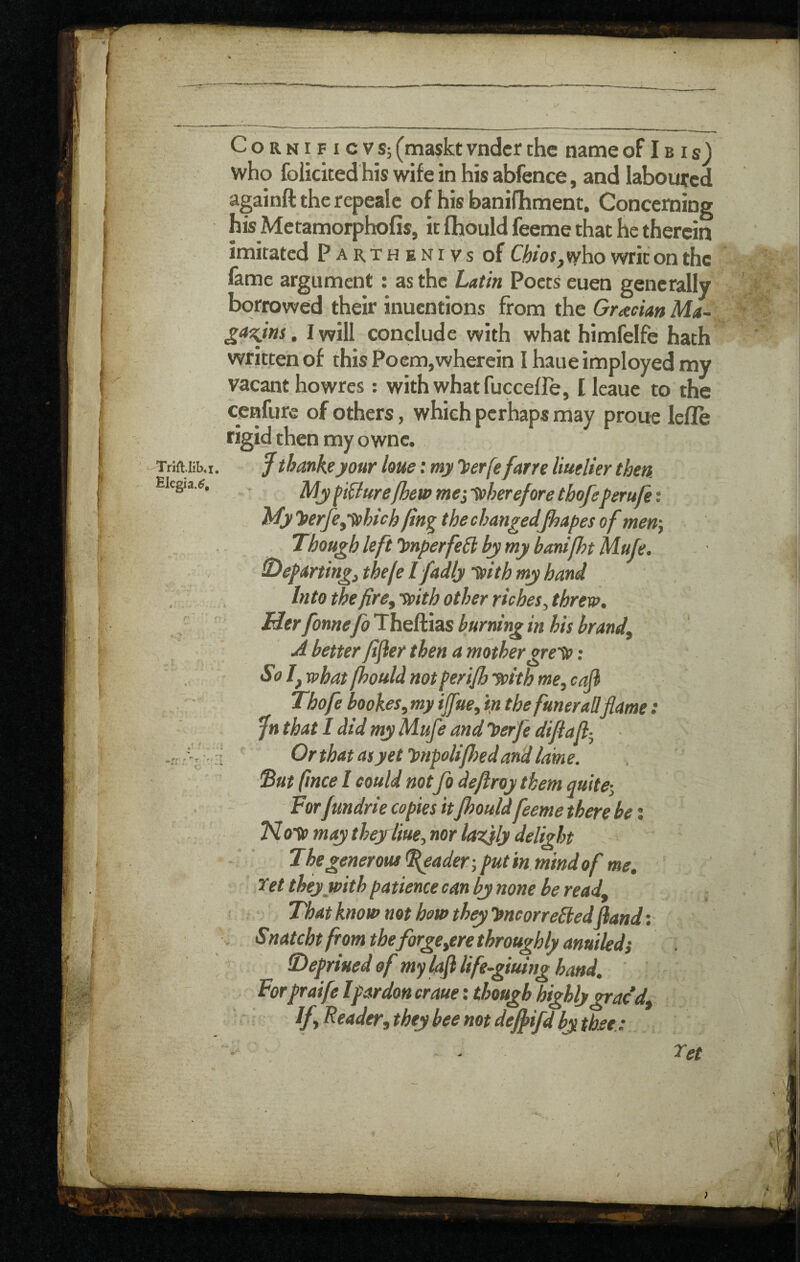 CORNIFICVS; (maskt vnder the name of IBIS)
who ſolicited his wife in his abſence, and laboured
againſt the repeale of his baniſhment. Concerning
his Metamorphoſis, it ſhould ſeeme that he therein
imitated PARTHENIVS of Chios, who writ on the
ſame argument : as the Latin Poets euen generally
borrowed their inuentions from the Græcian Ma-
gazins. I will conclude with what himſelfe hath
written of this Poem, wherein I haue imployed my
vacant howres : with what ſucceſſe, I leaue to the
cenſure of others, which perhaps may proue leſſe
rigid then my owne.
Triſt.lib.1.
Elegia.6.
I thanke your loue : my verſe farre liuelier then
My picture ſhew me; wherefore thoſe peruſe :
My verſe, which ſing the changed ſhapes of men;
Though left vnperfect by my baniſht Muſe.
Departing, theſe I ſadly with my hand
Into the fire, with other riches, threw.
Her ſonne ſo Theſtias burning in his brand,
A better ſiſter then a mother grew :
So I, what ſhould not periſh with me, caſt
Thoſe bookes, my iſſue, in the funerall flame :
In that I did my Muſe and verſe diſtaſt;
Or that as yet vnpoliſhed and lame.
But ſince I could not ſo deſtroy them quite;
For ſundrie copies it ſhould ſeeme there be :
Now may they liue, nor lazily delight
The generous Reader; put in mind of me.
Yet they with patience can by none be read,
That know not how they vncorrected ſtand :
Snatcht from the forge, ere throughly anuiled;
Depriued of my laſt life-giuing hand.
For praiſe I pardon craue : though highly grac'd,
If, Reader, they bee not deſpiſd by thee :
Yet